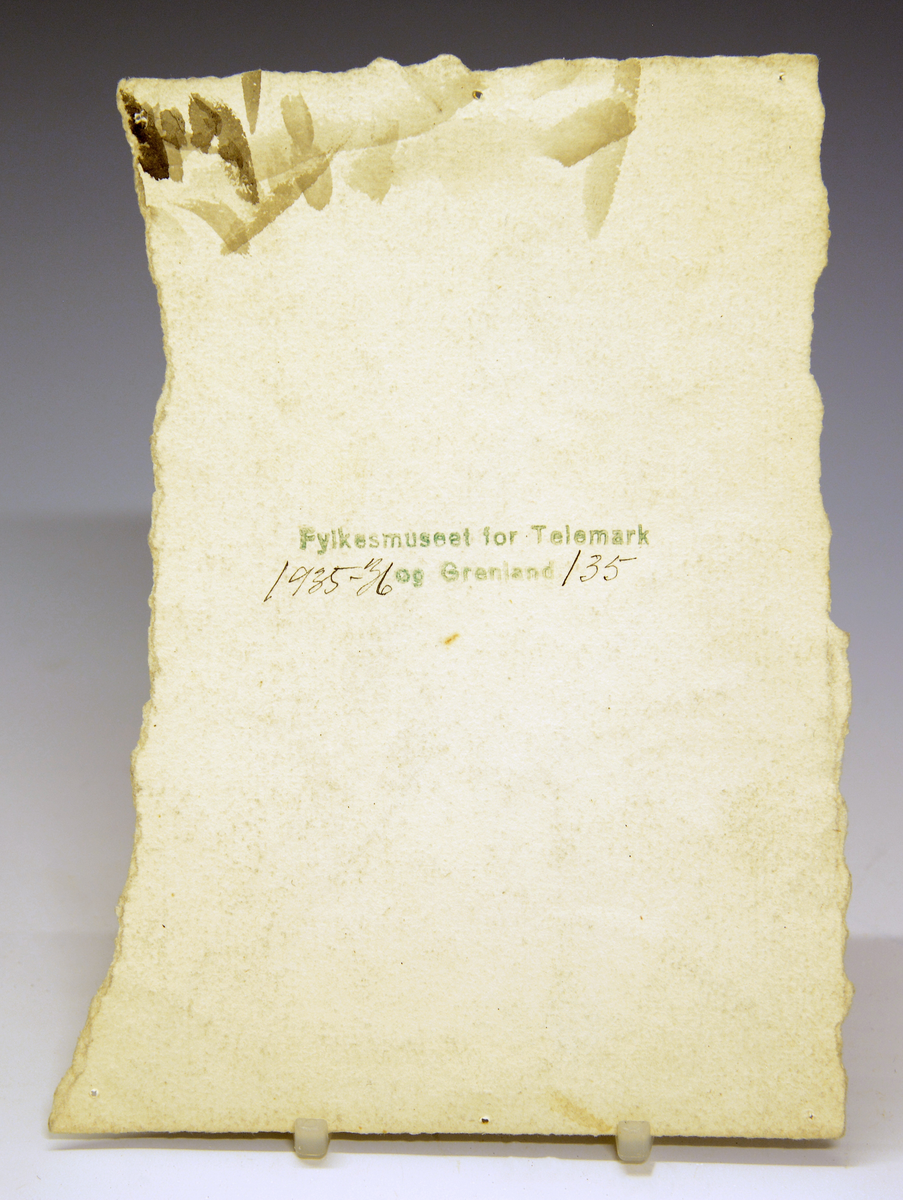 Fylkesmuseet for Telemark
1935-36 og Grenland 135